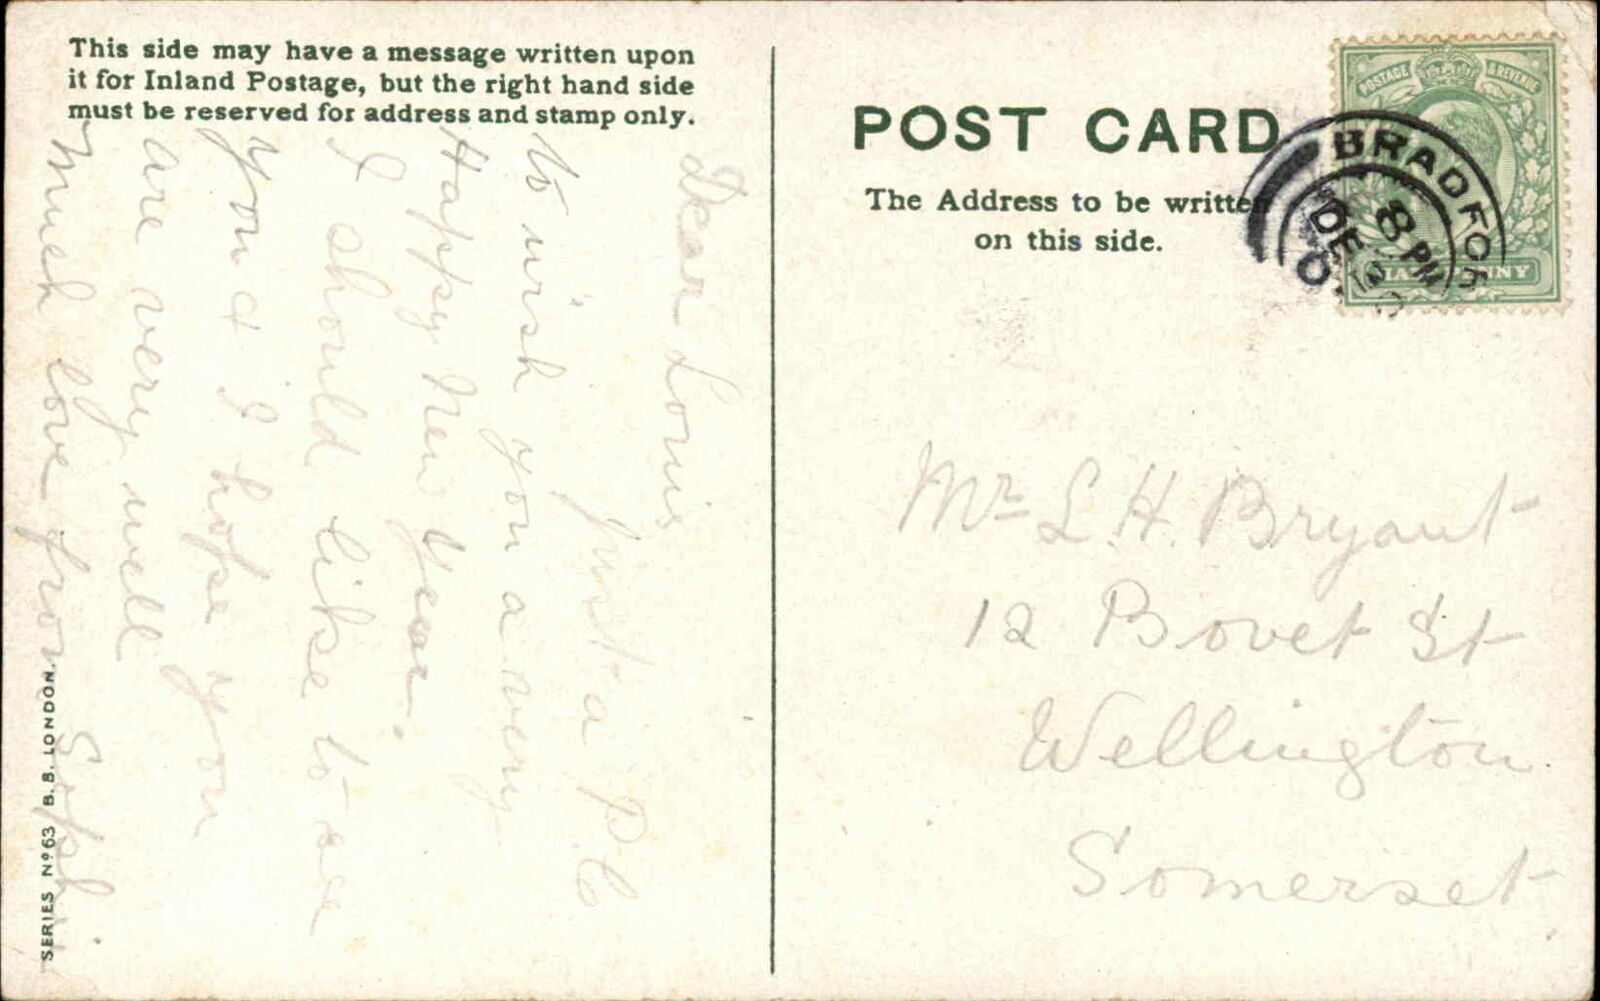 This side may have a message written upon
it for Inland Postage, but the right hand side
must be reserved for address and stamp only.
Dear Louis
Just a P C
to wish you a very
Happy New Year.
I should like to see
you & I hope you
are very well
Much love from Soph
SERIES Nº63 B.B. LONDON.
POST CARD
The Address to be written
on this side.
POSTAGE & REVENUE
HALFPENNY
BRADFOR
8 PM
DE
Mr L. H. Bryant
12 Bovet St
Wellington
Somerset